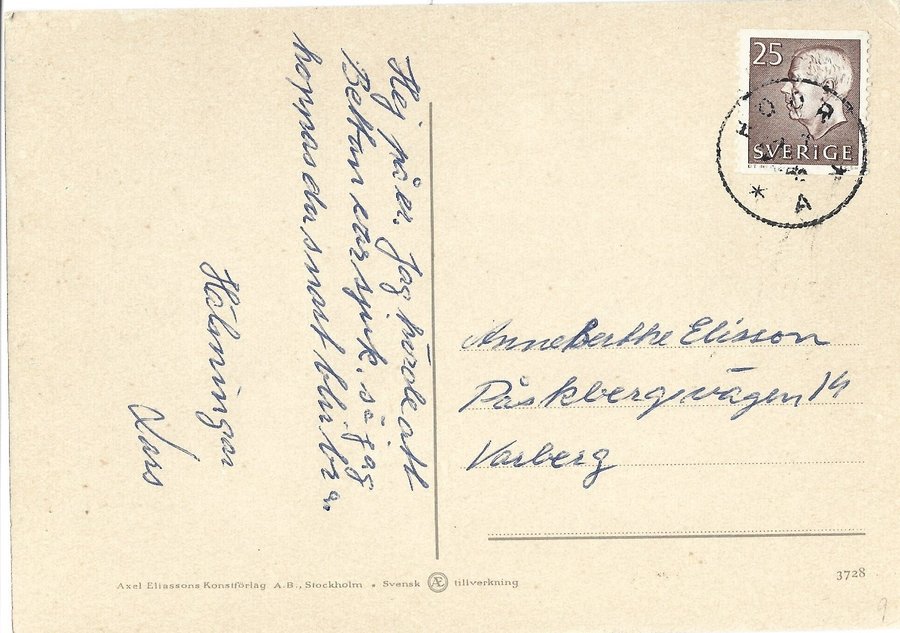 Hej på er. Jag hörde att
Bettan var sjuk, så jag
hoppas du snart blir bra.
Hälningar
Lars
25
SVERIGE
HÖÖR
A
Anneberthe Elisson
Påskbergsvägen 14
Varberg
Axel Eliassons Konstförlag A.B., Stockholm • Svensk Æ tillverkning
3728
9